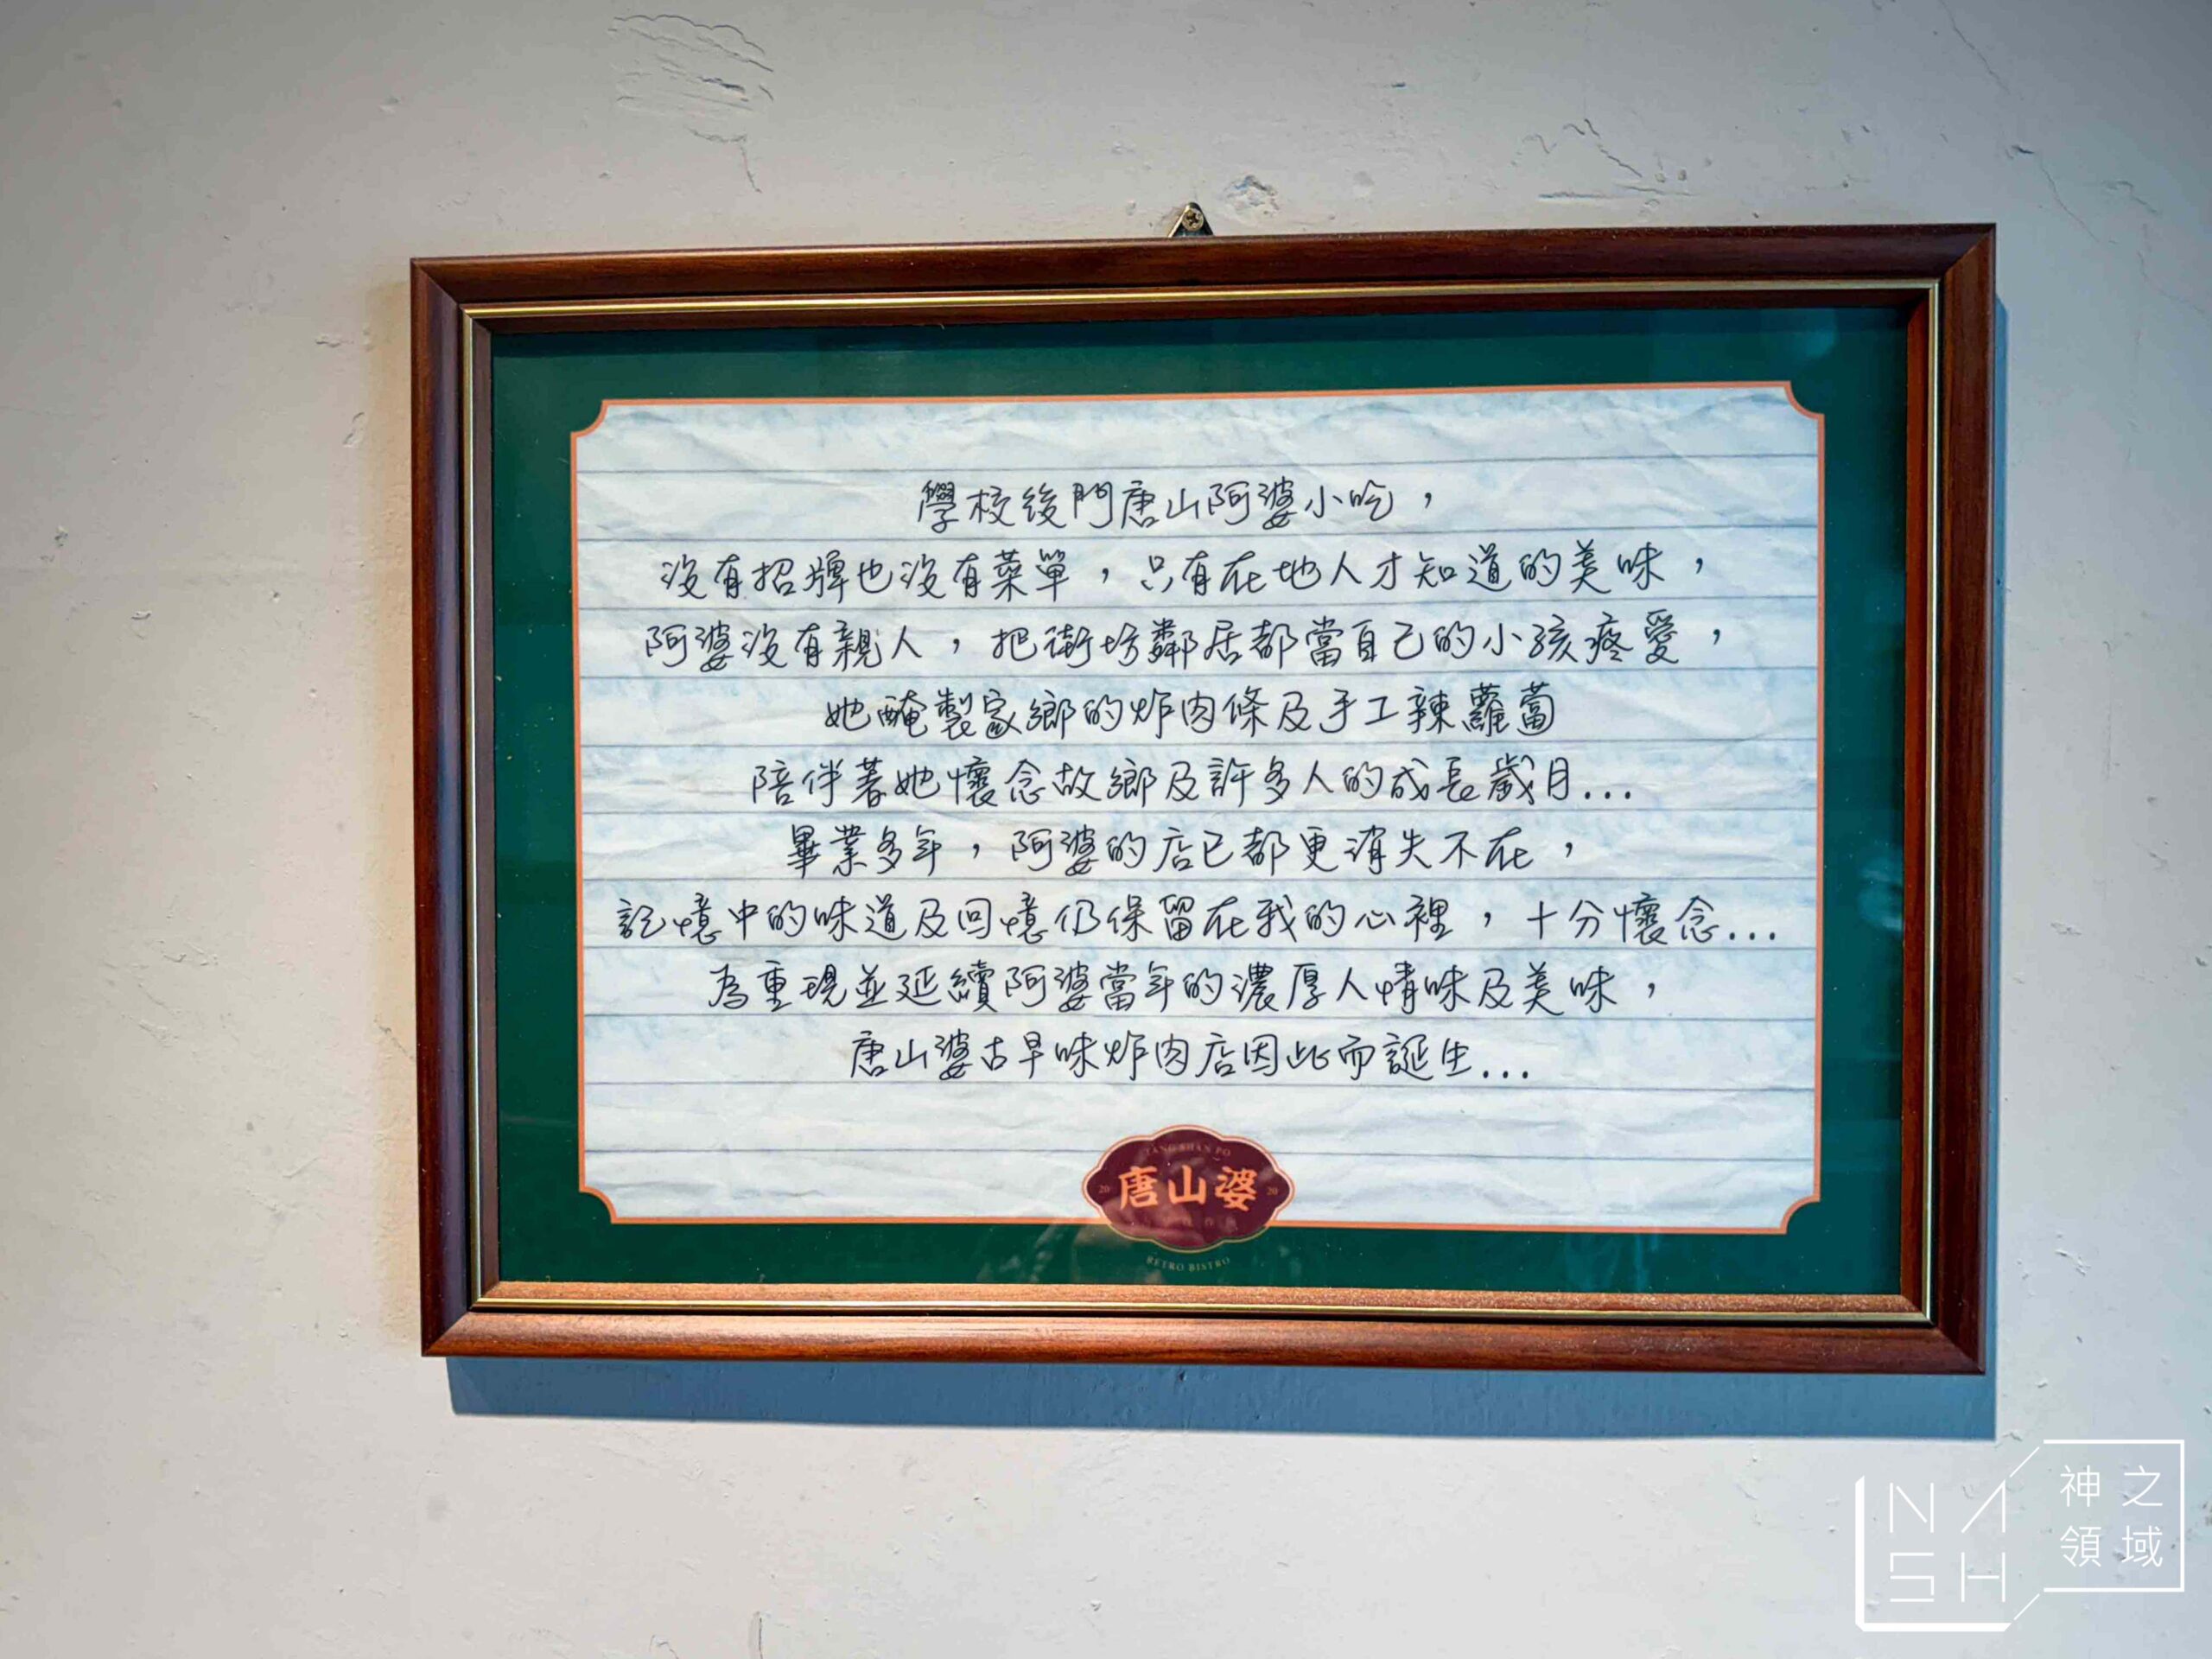 學校後門唐山阿婆小吃，
沒有招牌也沒有菜單，只有在地人才知道的美味，
阿婆沒有親人，把街坊鄰居都當自己的小孩疼愛，
她醃製家鄉的炸肉條及手工辣蘿蔔
陪伴著她懷念故鄉及許多人的成長歲月...
畢業多年，阿婆的店已都更消失不在，
記憶中的味道及回憶仍保留在我的心裡，十分懷念...
為重現並延續阿婆當年的濃厚人情味及美味，
唐山婆古早味炸肉店因此而誕生...
TANG SHAN PO
20 唐山婆 20
RETRO BISTRO
NASH
神之領域